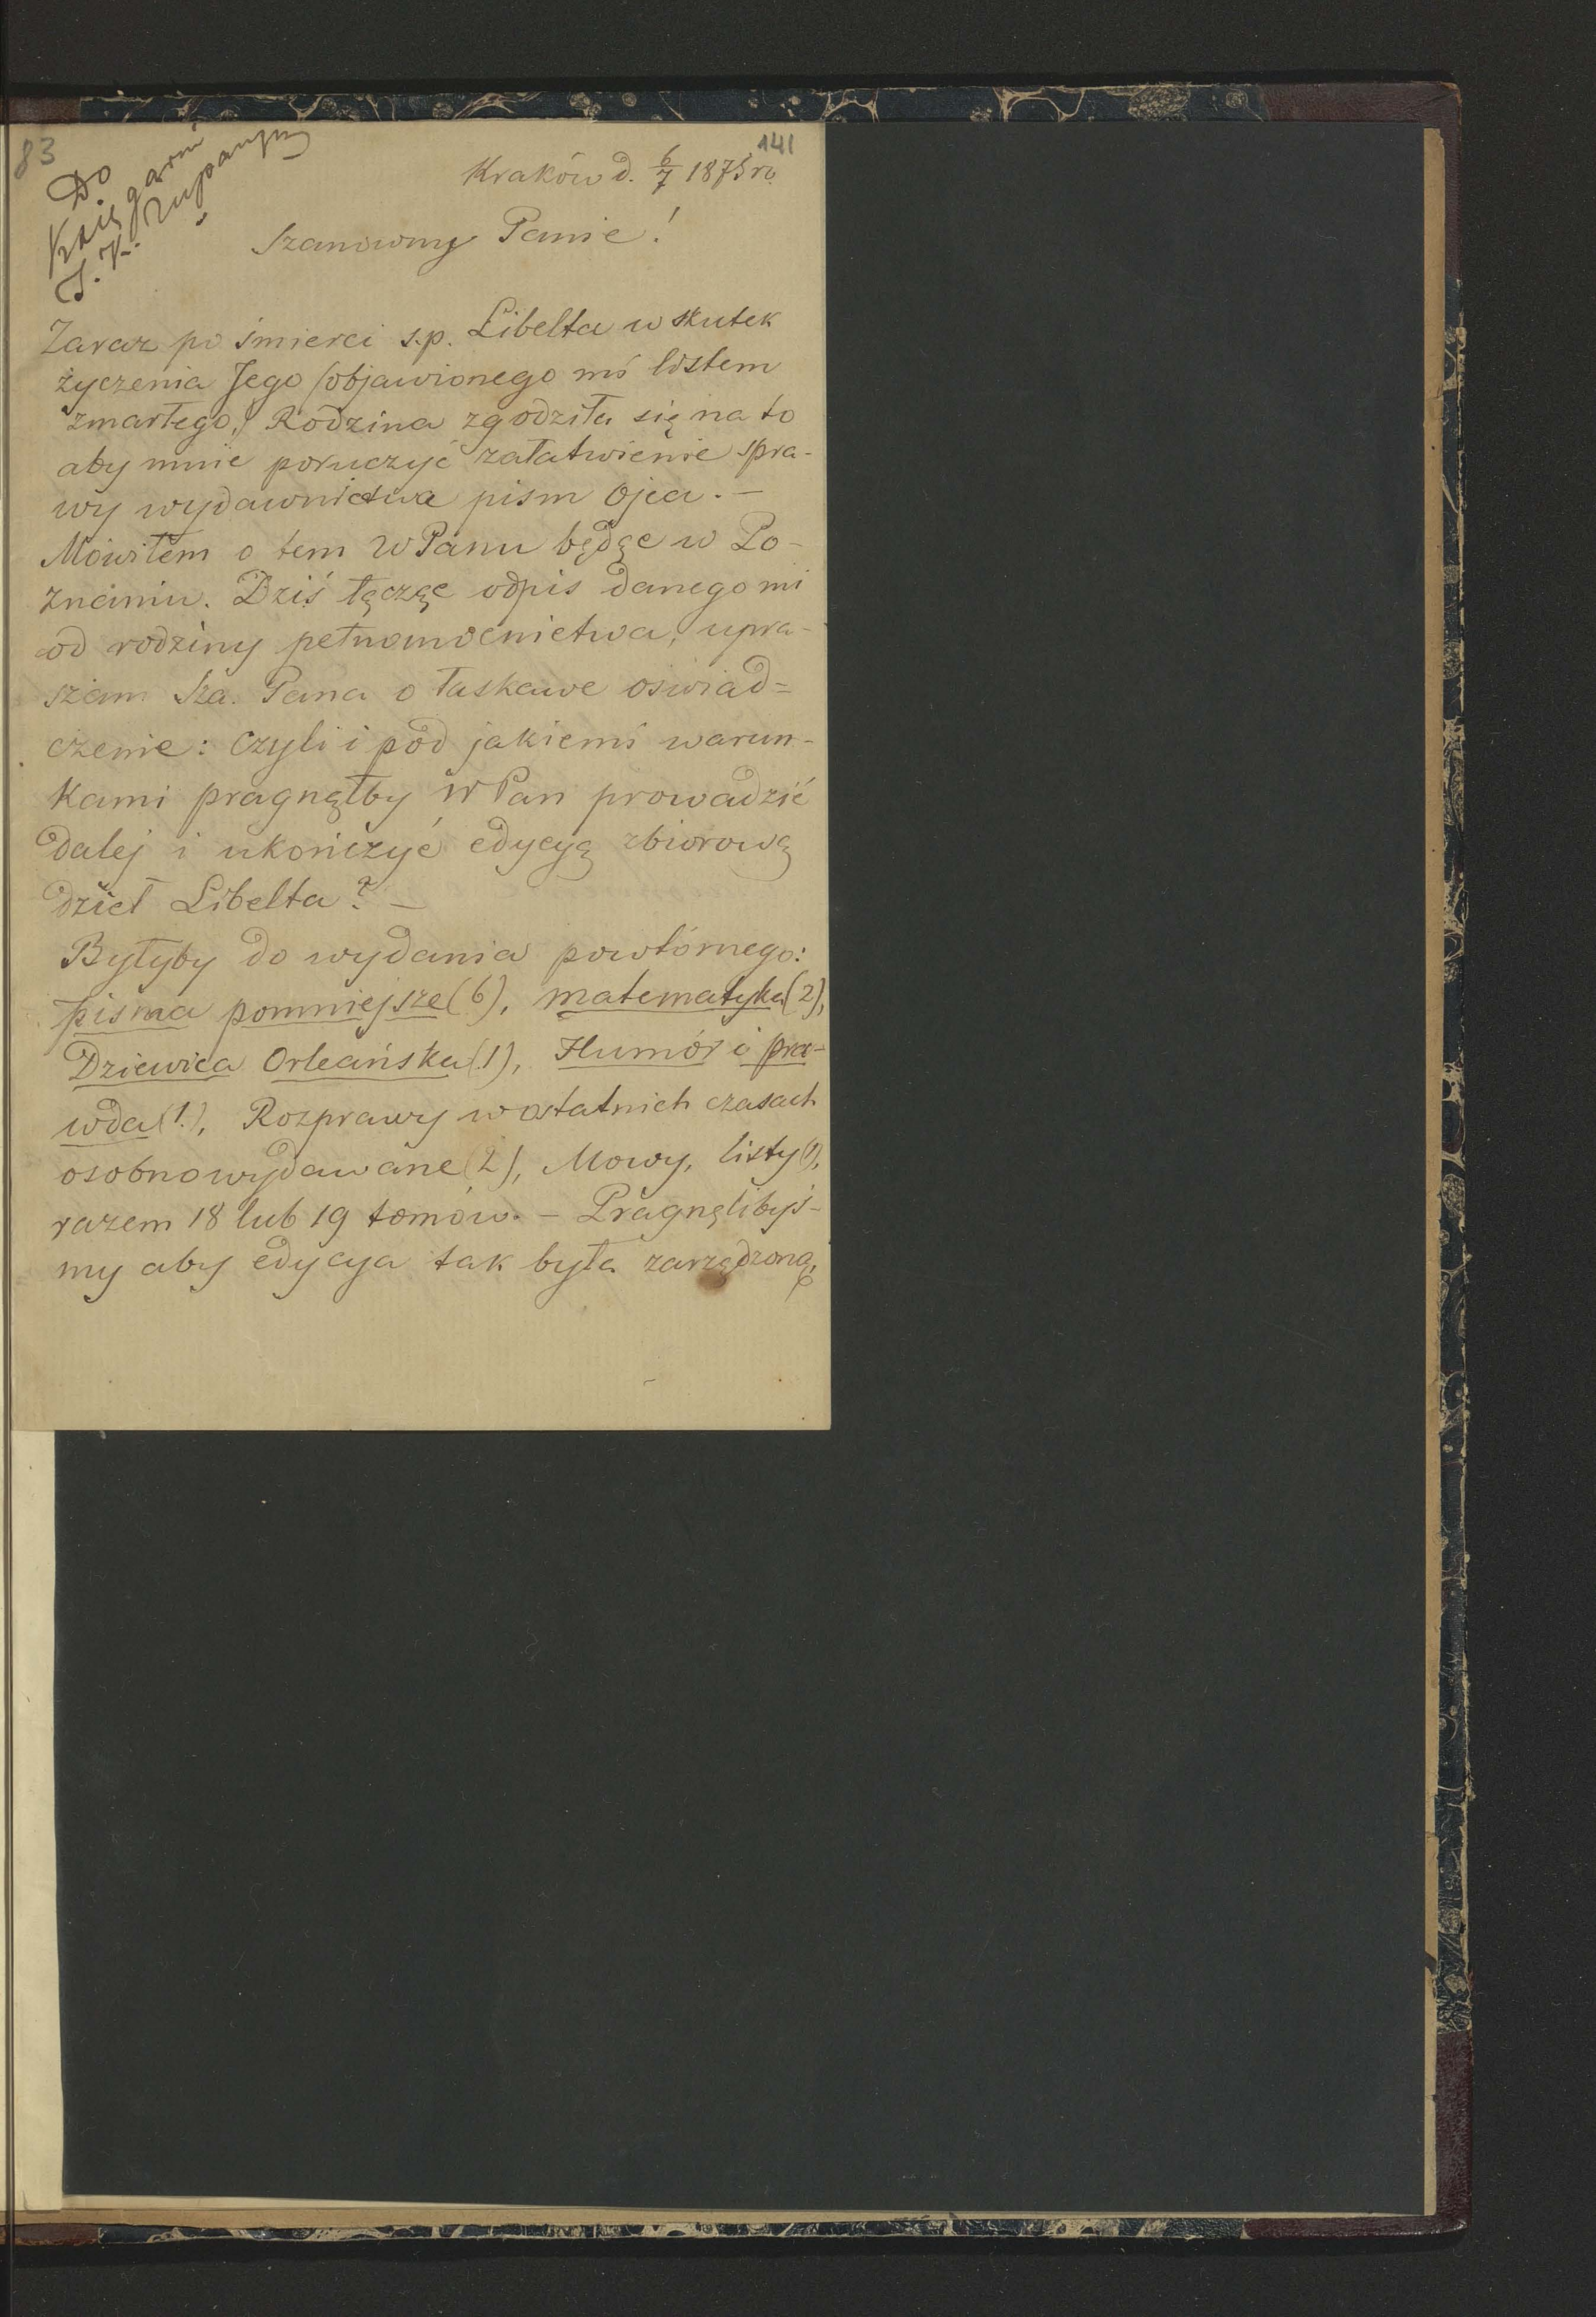 83
141
Do
Księgarni
J. K. Żupański
Kraków d. 6/7 1875 r.
Szanowny Panie!
Zaraz po śmierci s.p. Libelta w skutek
życzenia Jego /objawionego mi listem
zmarłego,/ Rodzina zgodziła się na to
aby mnie poruczyć załatwienie spra-
wy wydawnictwa pism Ojca. —
Mówiłem o tem WPanu będąc w Po-
znaniu. Dziś łącząc odpis danego mi
od rodziny pełnomocnictwa, upra-
szam Sza. Pana o łaskawe oświad=
czenie: Czyli i pod jakiemi warun-
kami pragnąłby WPan prowadzić
dalej i ukończyć edycyą zbiorową
dzieł Libelta? —
Byłyby do wydania powtórnego:
pisma pomniejsze (6), matematyka (2),
Dziewica Orleańska (1), Humór i pra-
wda (1), Rozprawy w ostatnich czasach
osobno wydawane (2), Mowy, listy (1),
razem 18 lub 19 tomów. — Pragnęlibyś-
my aby edycya tak była zarządzoną,